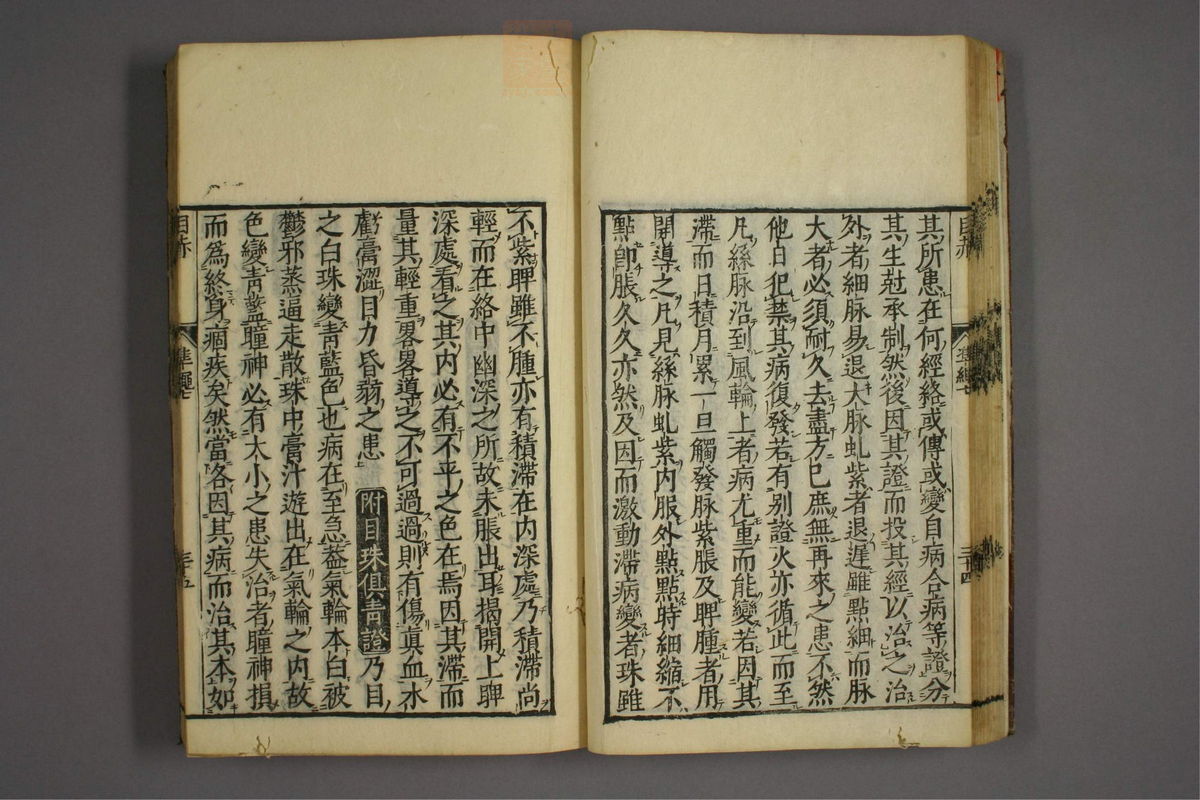 其所患在何經絡或傳或變自病合病等證分
其生尅承制然後因其證而投其經以治之治
外者細脉易退大脉虬紫者退遲雖點細而脉
大者必須耐久去盡方已庶無再來之患不然
他日犯禁其病復發若有別證火亦循此而至
凡絲脉沿到風輪上者病尤重而能變若因其
滯而日積月累一旦觸發脉紫脹及睥腫者用
開導之凡見絲脉虬紫内服外點點時細縮不
點卽脹久久亦然及因而激動滯病變者珠雖
不紫睥雖不腫亦有積滯在内深處乃積滯尚
輕而在絡中幽深之所故未脹出耳揭開上睥
深處看之其内必有不平之色在焉因其滯而
量其輕重畧畧導之不可過過則有傷眞血水
虧膏澀目力昏弱之患 附目珠俱靑證 乃目
之白珠變靑藍色也病在至急葢氣輪本白被
鬱邪蒸逼走散珠中膏汁遊出在氣輪之内故
色變靑藍瞳神必有大小之患失治者瞳神損
而爲終身痼疾矣然當各因其病而治其本如
目赤
準繩七
三十五
目赤
準繩七
三十四